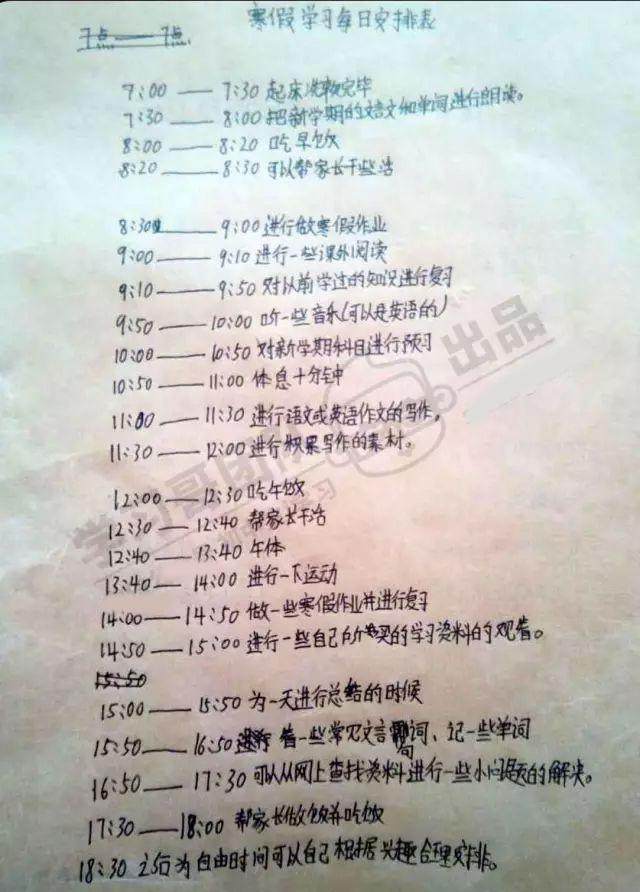 寒假学习每日安排表
7点——7点
7:00——7:30 起床洗漱完毕
7:30——8:00 把新学期的文言文和单词进行朗读。
8:00——8:20 吃早饭
8:20——8:30 可以帮家长干些活
8:30——9:00 进行做寒假作业
9:00——9:10 进行一些课外阅读
9:10——9:50 对以前学过的知识进行复习
9:50——10:00 听一些音乐(可以是英语的)
10:00——10:50 对新学期科目进行预习
10:50——11:00 休息十分钟
11:00——11:30 进行语文或英语作文的写作。
11:30——12:00 进行积累写作的素材。
12:00——12:30 吃午饭
12:30——12:40 帮家长干活
12:40——13:40 午休
13:40——14:00 进行一下运动
14:00——14:50 做一些寒假作业并进行复习
14:50——15:00 进行一些自己所买的学习资料的观看。
15:50
15:00——15:50 为一天进行总结的时候
15:50——16:50 看一些常见文言词、记一些单词
句
16:50——17:30 可以从网上查找资料进行一些小问题的解决。
17:30——18:00 帮家长做饭并吃饭
18:30 之后为自由时间可以自己根据兴趣合理安排。
学习哥团队
出品